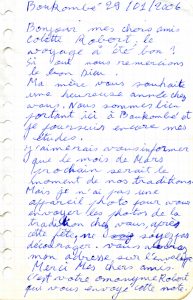 Boukombé 29/01/2006
Bonjour mes chers amis
Colette Robert, le
voyage a été bon ?
Si oui nous remercions
le bon Dieu.
Ma mère vous souhaite
une heureuse année chez
vous. Nous sommes bien
portant ici à Boukombé et
je poursuis encore mes
études.
j'aimerais vous informer
que le mois de Mars
prochain serait le
moment de nos traditions
Mais je n'ai pas une
appareil photo pour vous
envoyer les photos de la
tradition chez vous après
cette fête, ne soyez pas
décourager. vous
mon adresse sur l'enveloppe
Merci Mes chers amis.
c'est votre Robert
qui vous envoye cette note.